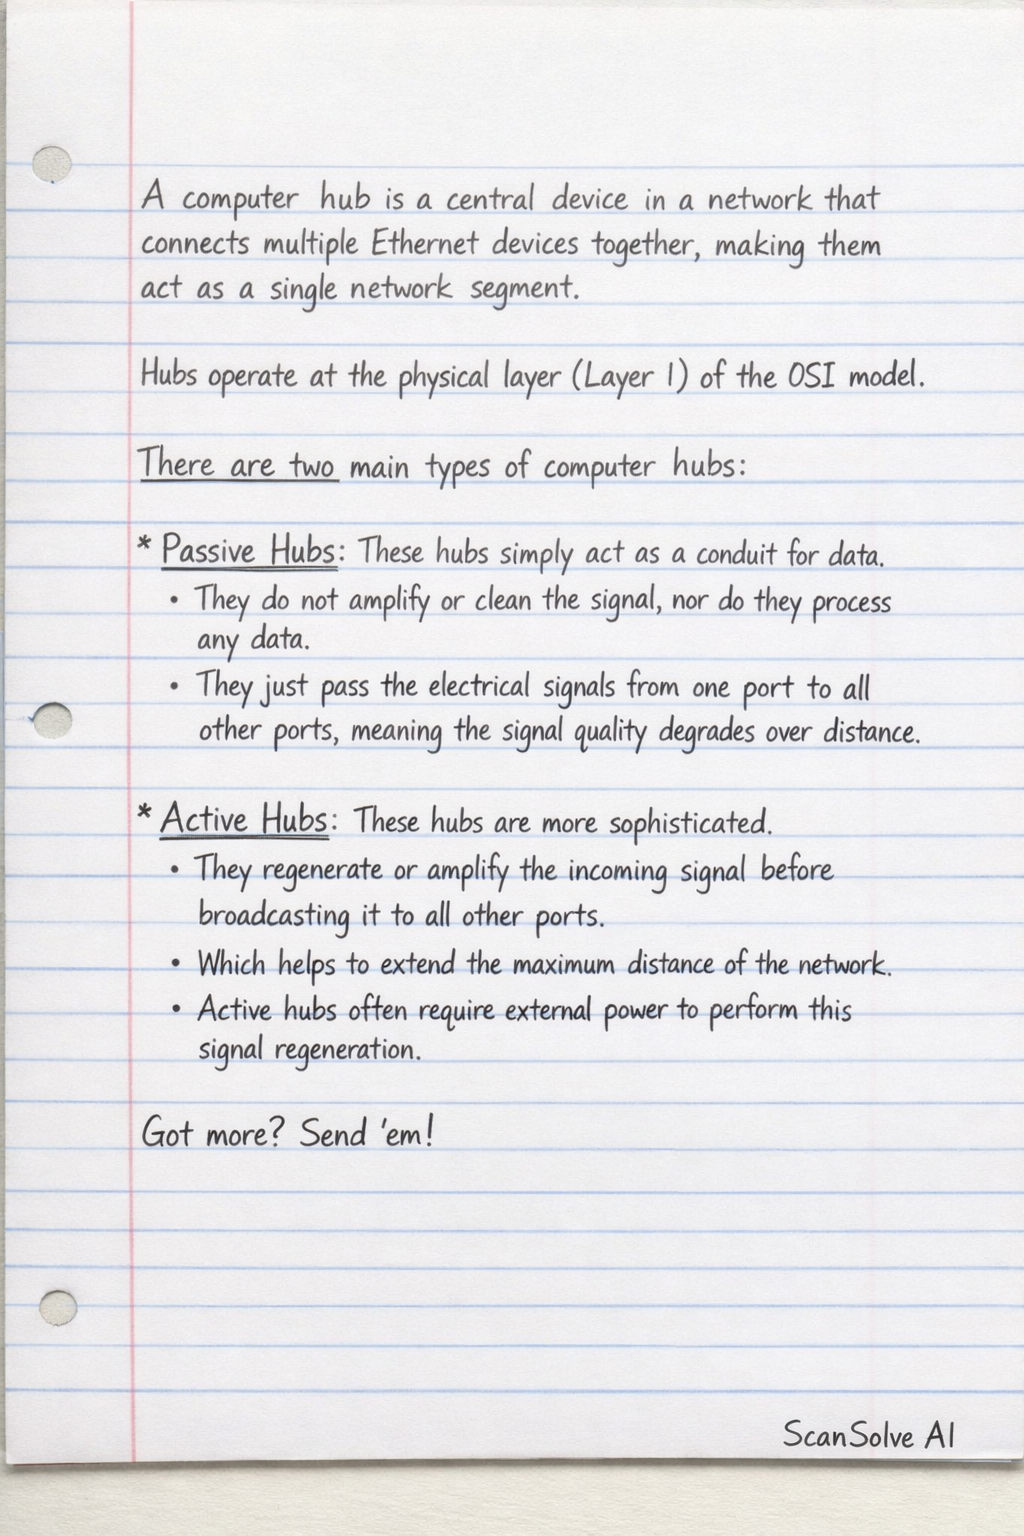 A computer hub is a central device in a network that
connects multiple Ethernet devices together, making them
act as a single network segment.
Hubs operate at the physical layer (Layer 1) of the OSI model.
There are two main types of computer hubs:
* Passive Hubs: These hubs simply act as a conduit for data.
• They do not amplify or clean the signal, nor do they process
any data.
• They just pass the electrical signals from one port to all
other ports, meaning the signal quality degrades over distance.
* Active Hubs: These hubs are more sophisticated.
• They regenerate or amplify the incoming signal before
broadcasting it to all other ports.
• Which helps to extend the maximum distance of the network.
• Active hubs often require external power to perform this
signal regeneration.
Got more? Send 'em!
ScanSolve AI